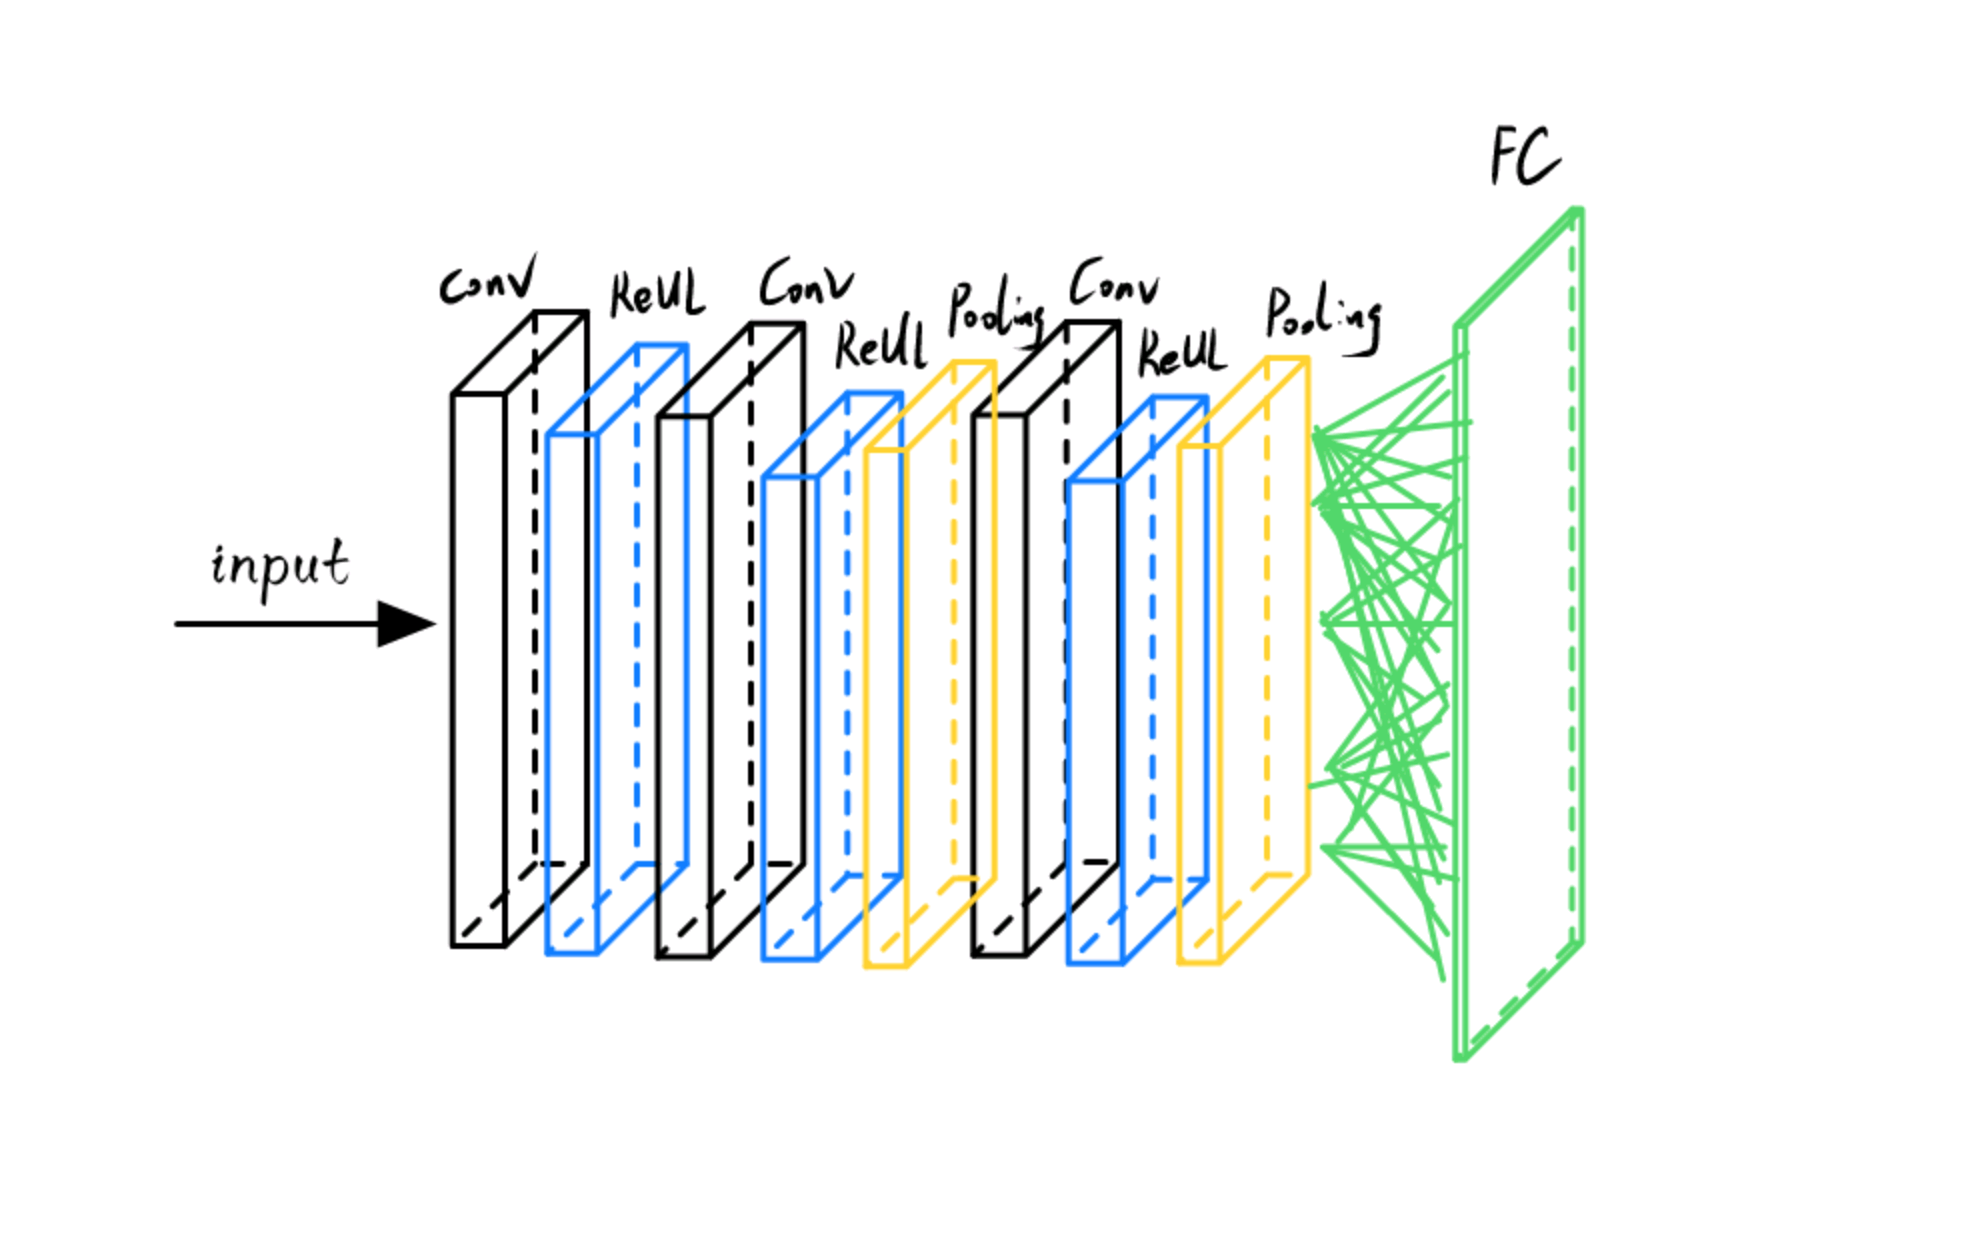 input
Conv
ReUL
Conv
ReUL
Pooling
Conv
ReUL
Pooling
FC